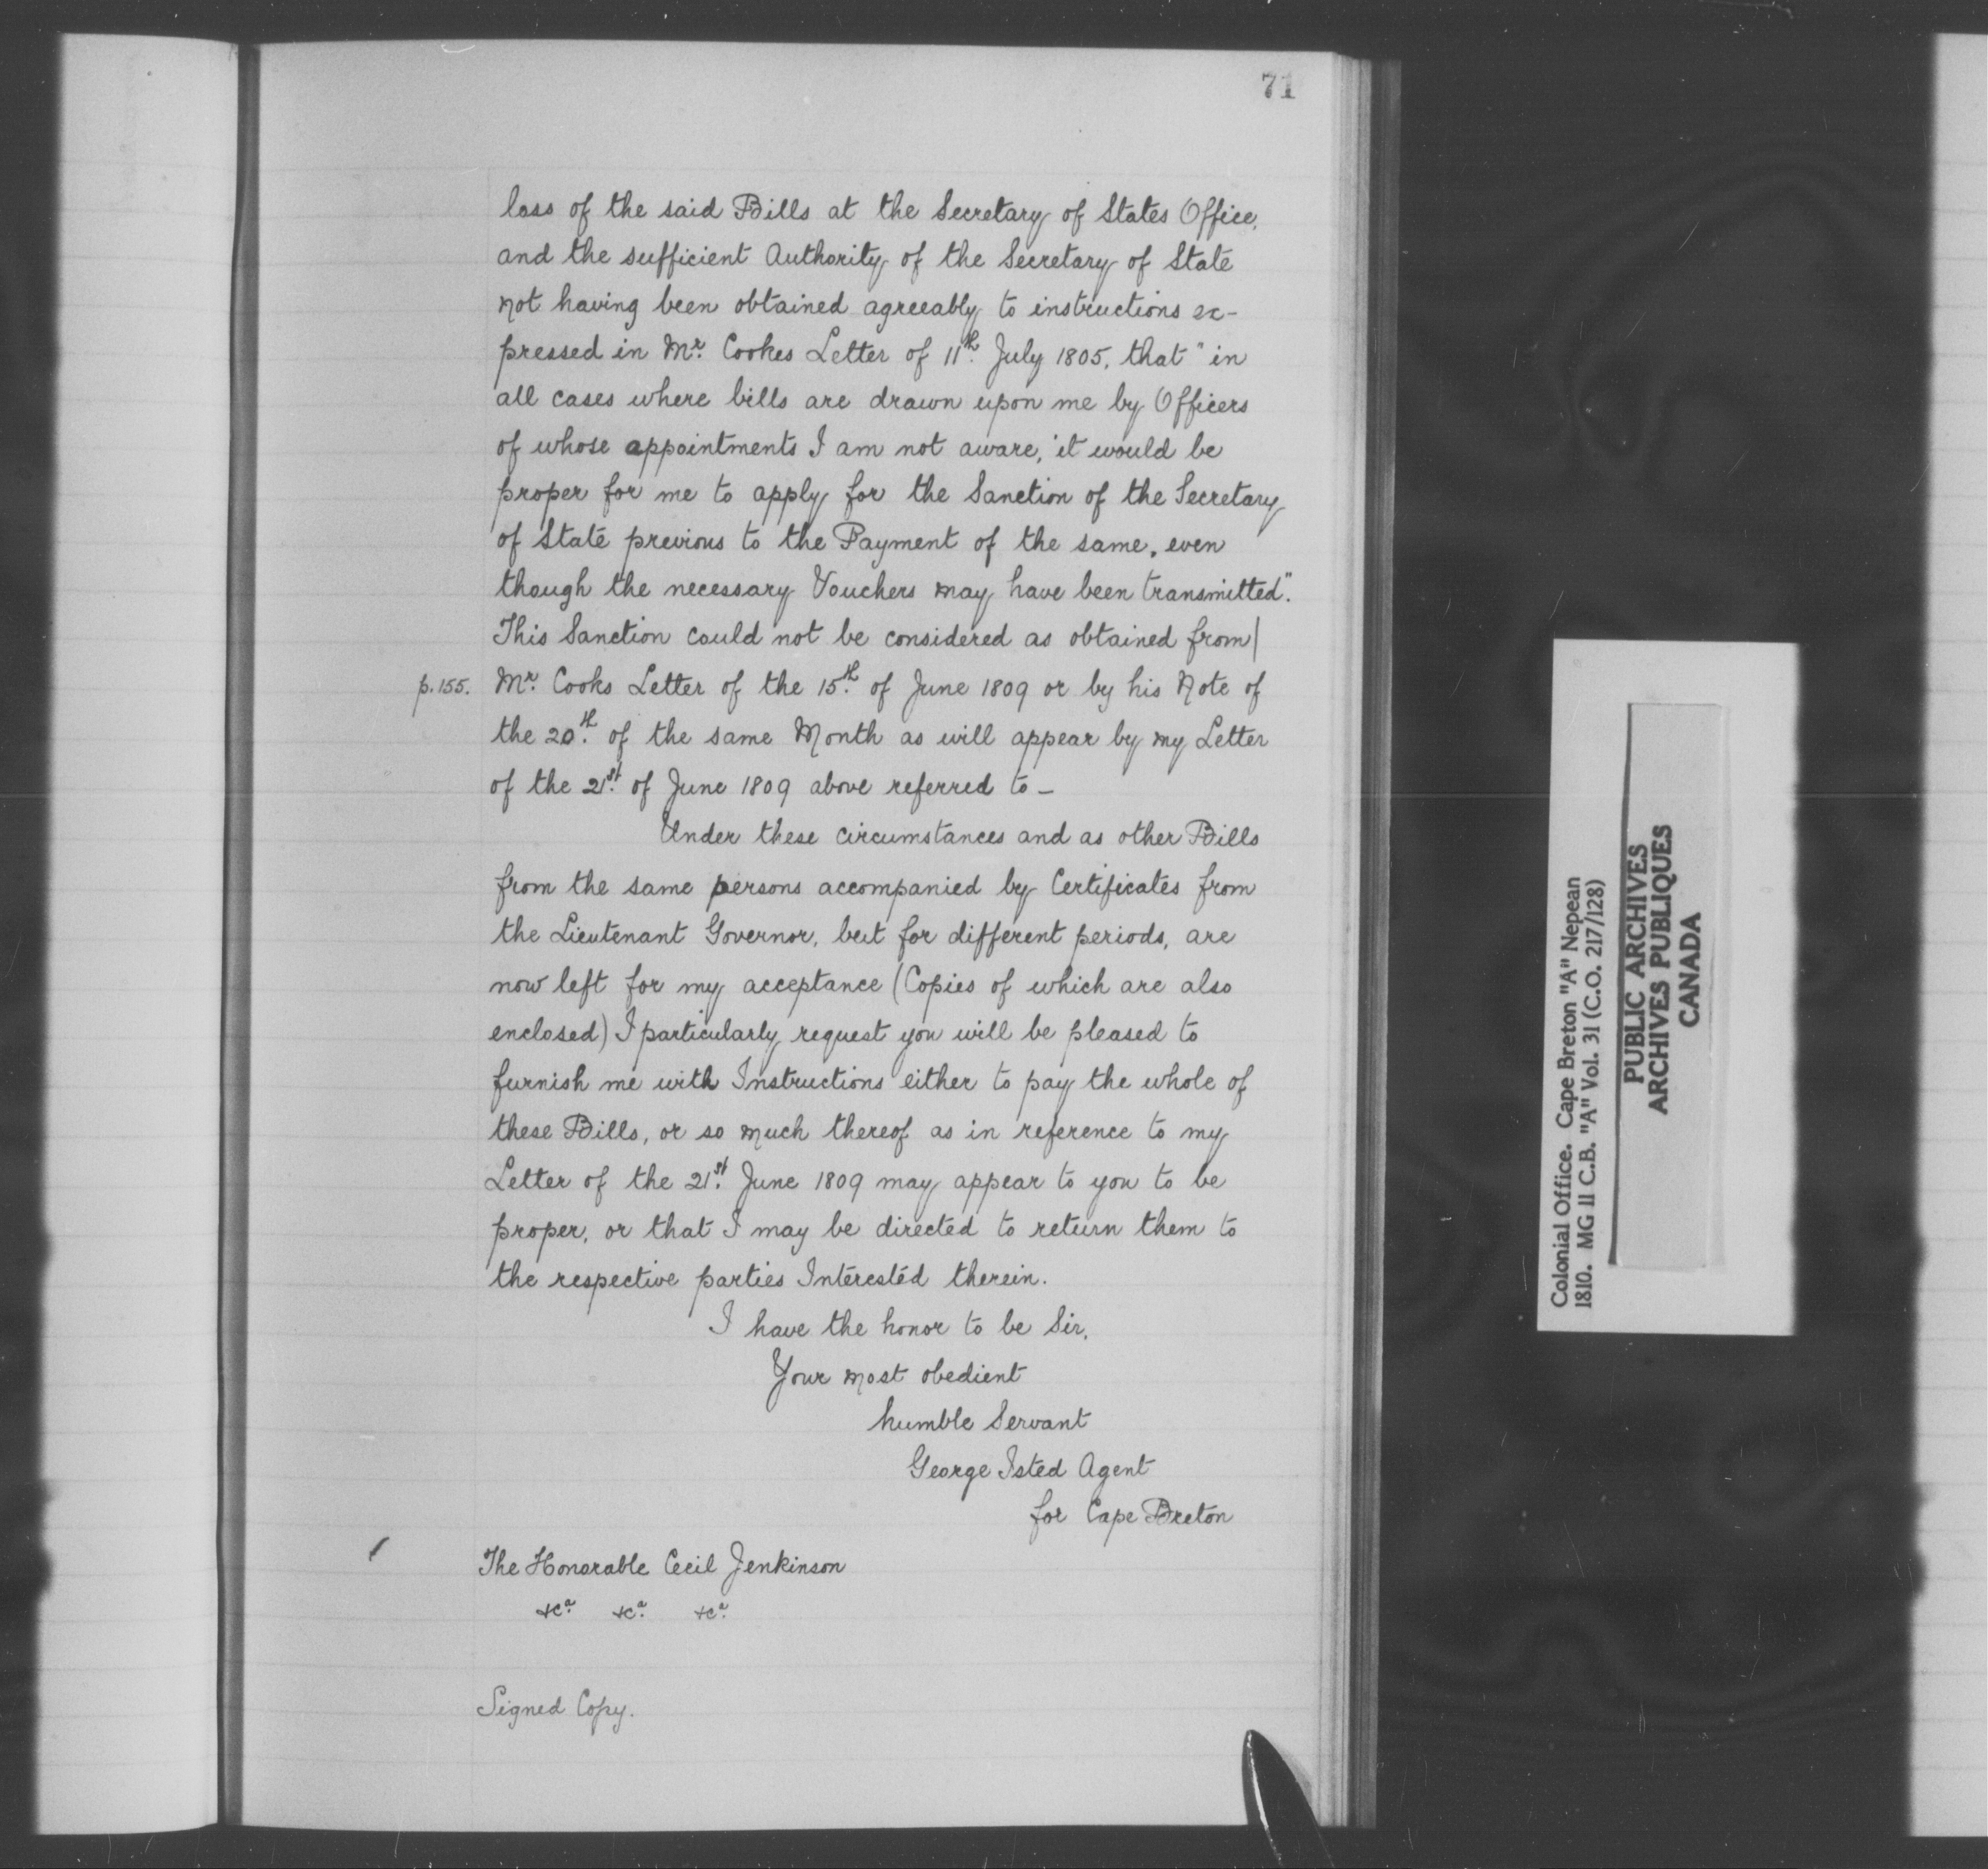 71
loss of the said Bills at the Secretary of States Office,
and the sufficient Authority of the Secretary of State
not having been obtained agreeably to instructions ex-
pressed in Mr. Cookes Letter of 11th. July 1805, that "in
all cases where bills are drawn upon me by Officers
of whose appointments I am not aware, 'it would be
proper for me to apply for the Sanction of the Secretary
of State previous to the Payment of the same, even
though the necessary Vouchers may have been transmitted".
This Sanction could not be considered as obtained from|
p. 155. Mr. Cooks Letter of the 15th. of June 1809 or by his Note of
the 20th. of the same Month as will appear by my Letter
of the 21st. of June 1809 above referred to –
Under these circumstances and as other Bills
from the same persons accompanied by Certificates from
the Lieutenant Governor, but for different periods, are
now left for my acceptance (Copies of which are also
enclosed) I particularly request you will be pleased to
furnish me with Instructions either to pay the whole of
these Bills, or so much thereof as in reference to my
Letter of the 21st. June 1809 may appear to you to be
proper, or that I may be directed to return them to
the respective parties Interested therein.
I have the honor to be Sir,
Your most obedient
humble Servant
George Isted Agent
for Cape Breton
The Honorable Cecil Jenkinson
&ca. &ca. &ca.
Signed Copy.
Colonial Office. Cape Breton "A" Nepean
1810. MG 11 C.B. "A" Vol. 31 (C.O. 217/128)
PUBLIC ARCHIVES
ARCHIVES PUBLIQUES
CANADA